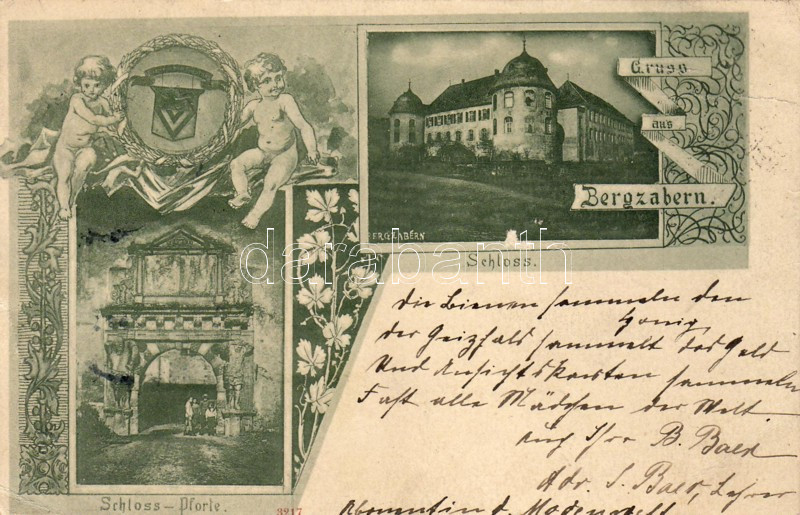 Gruss
aus
Bergzabern.
BERGZABERN
Schloss.
darabanth
die Bienen sammeln den
Honig,
der Geizhals sammelt das Geld
Und Ansichtskarten sammeln
Fast alle Mädchen der Welt.
auch Ihre B. Baer
Adr. S. Baer, Lehrer
Abonnentin d. Modenwelt
Schloss-Pforte.
3217